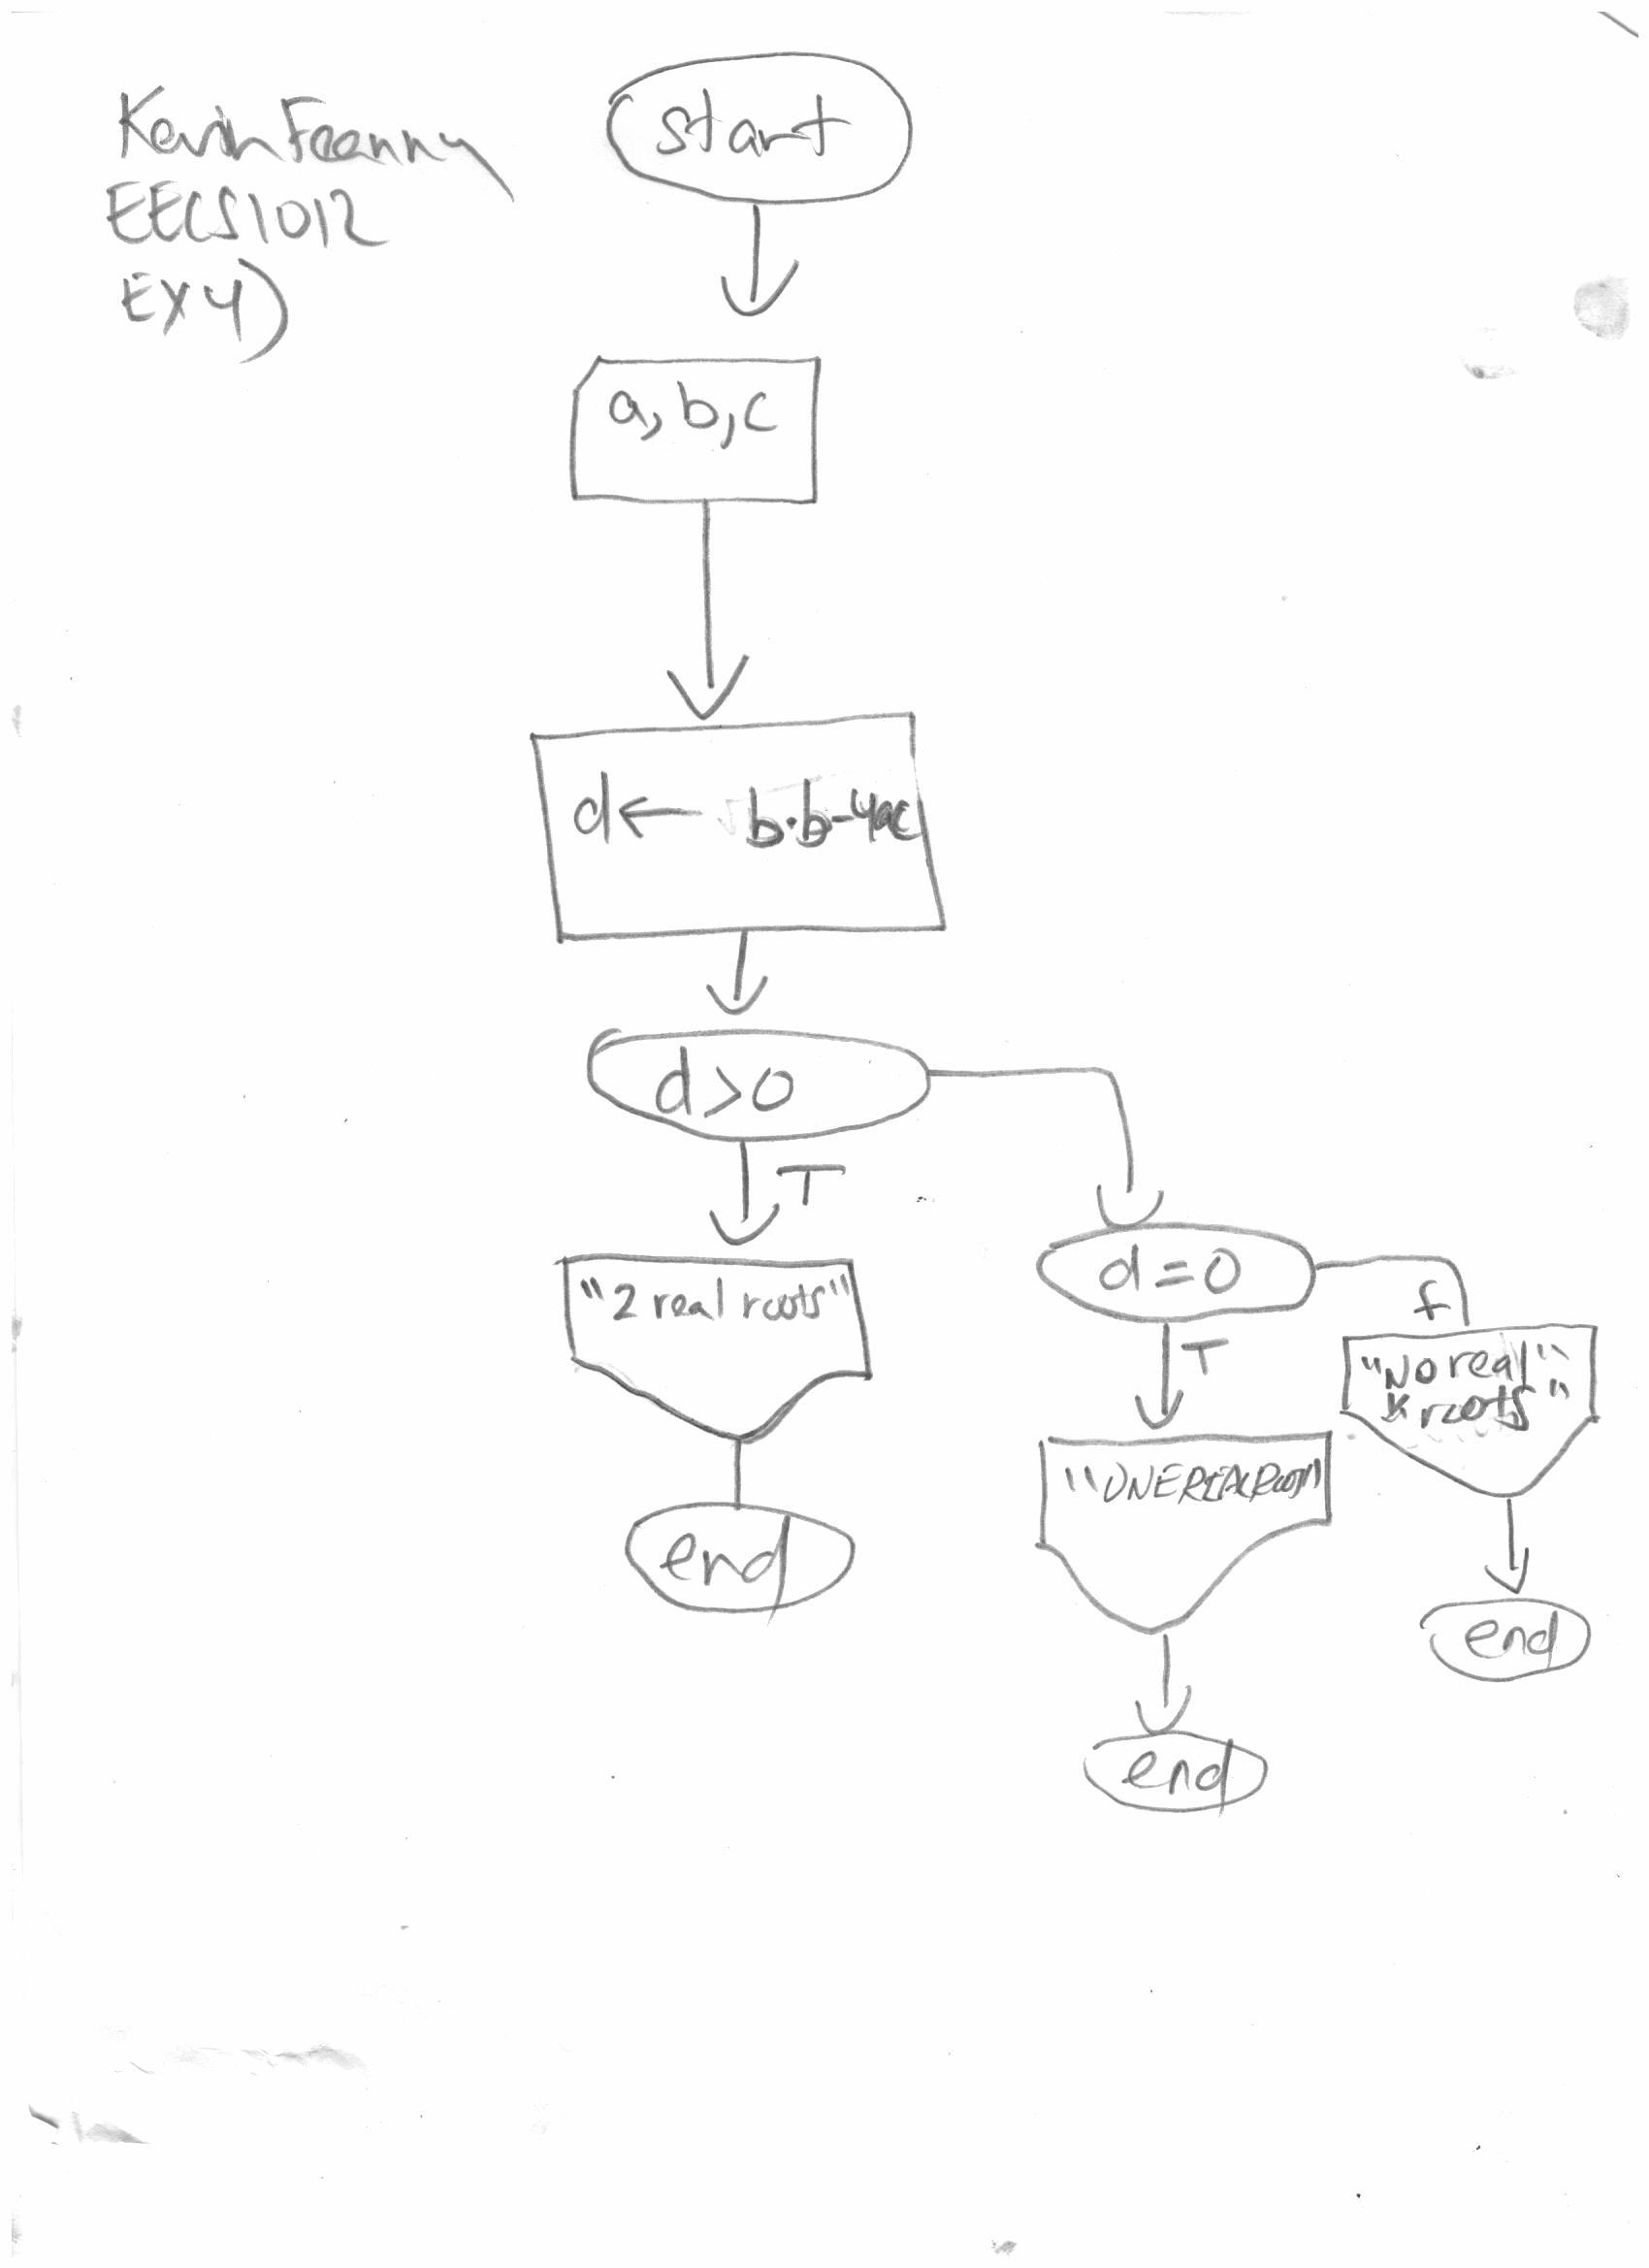 Kevin Feanny
EECS1012
EX4)
start
a, b, c
d ← b·b-4ac
d>0
T
"2 real roots"
end
d=0
f
T
"No real"
roots"
"ONE REAL Root"
end
end